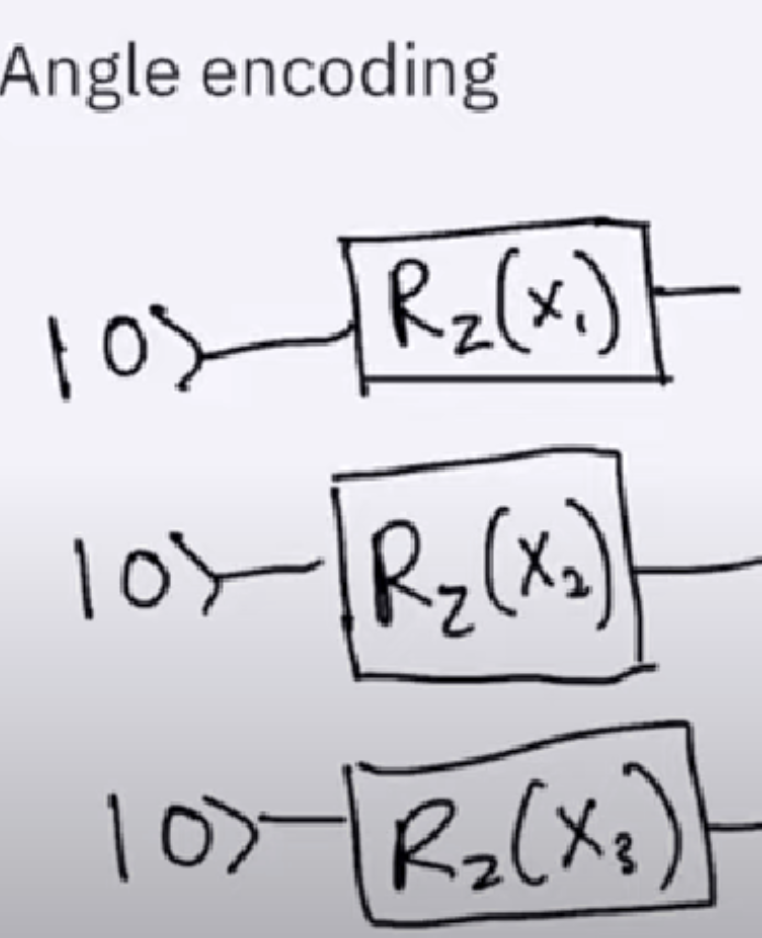 Angle encoding
|0⟩ R_z(x_1)
|0⟩ R_z(x_2)
|0⟩ R_z(x_3)